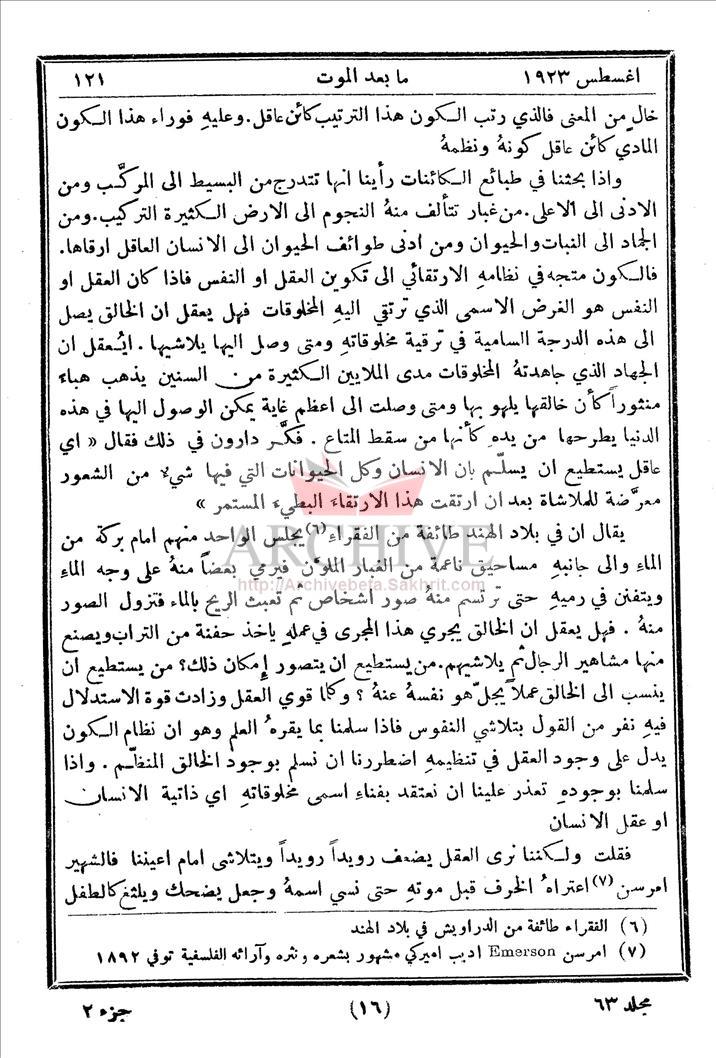 اغسطس ١٩٢٣ ما بعد الموت ١٢١
خالٍ من المعنى فالذي رتب الكون هذا الترتيب كائن عاقل. وعليهِ فوراء هذا الكون
المادي كائن عاقل كونهُ ونظمهُ
واذا بحثنا في طبائع الكائنات رأينا انها تتدرج من البسيط الى المركَّب ومن
الادنى الى الاعلى. من غبار تتألف منهُ النجوم الى الارض الكثيرة التركيب. ومن
الجماد الى النبات والحيوان ومن ادنى طوائف الحيوان الى الانسان العاقل ارقاها.
فالكون متجه في نظامهِ الارتقائي الى تكوين العقل او النفس فاذا كان العقل او
النفس هو الغرض الاسمى الذي ترتقي اليهِ المخلوقات فهل يعقل ان الخالق يصل
الى هذه الدرجة السامية في ترقية مخلوقاتهِ ومتى وصل اليها يلاشيها. ايُعقل ان
الجهاد الذي جاهدتهُ المخلوقات مدى الملايين الكثيرة من السنين يذهب هباء
منثوراً كأن خالقها يلهو بها ومتى وصلت الى اعظم غاية يمكن الوصول اليها في هذه
الدنيا يطرحها من يدهِ كأنها من سقط المتاع. فكَّر دارون في ذلك فقال « اي
عاقل يستطيع ان يسلّم بان الانسان وكل الحيوانات التي فيها شيء من الشعور
معرَّضة للملاشاة بعد ان ارتقت هذا الارتقاء البطيء المستمر »
يقال ان في بلاد الهند طائفة من الفقراء(٦) يجلس الواحد منهم امام بركة من
الماءِ والى جانبهِ مساحيق ناعمة من الغبار الملوَّن فيرمي بعضاً منهُ على وجه الماءِ
ويتفنن في رميهِ حتى ترتسم منهُ صور أشخاص ثم تعبث الريح بالماء فتزول الصور
منهُ. فهل يعقل ان الخالق يجري هذا المجرى في عملهِ ياخذ حفنة من التراب ويصنع
منها مشاهير الرجال ثم يلاشيهم. من يستطيع ان يتصور إمكان ذلك؟ من يستطيع ان
ينسب الى الخالق عملاً يجلّ هو نفسهُ عنهُ؟ وكلما قوي العقل وزادت قوة الاستدلال
فيهِ نفر من القول بتلاشي النفوس فاذا سلمنا بما يقرهُ العلم وهو ان نظام الكون
يدل على وجود العقل في تنظيمهِ اضطررنا ان نسلم بوجود الخالق المنظّم. واذا
سلمنا بوجودهِ تعذر علينا ان نعتقد بفناء اسمى مخلوقاتهِ اي ذاتية الانسان
او عقل الانسان
فقلت ولكننا نرى العقل يضعف رويداً رويداً ويتلاشى امام اعيننا فالشهير
امرسن(٧) اعتراهُ الخرف قبل موتهِ حتى نسي اسمهُ وجعل يضحك ويلثغ كالطفل
(٦) الفقراء طائفة من الدراويش في بلاد الهند
(٧) امرسن Emerson اديب اميركي مشهور بشعره ونثره وآرائه الفلسفية توفي ١٨٩٢
مجلد ٦٣ (١٦) جزء ٢
ARCHIVE
http://Archivebeta.Sakhrit.com